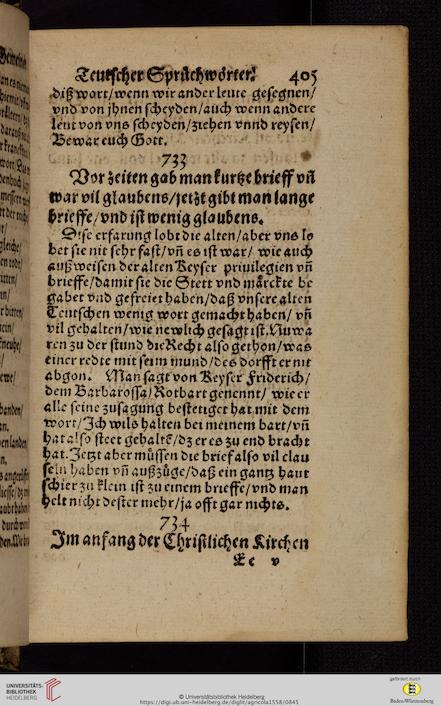 Teutscher Sprüchwörter. 405
diß wort/wenn wir ander leute gesegnen/
vnd von jhnen scheyden/auch wenn andere
leut von vns scheyden/ziehen vnnd reysen/
Bewar euch Gott.
733
Vor zeiten gab man kurtze brieff vñ
war vil glaubens/jetzt gibt man lange
brieffe/vnd ist wenig glaubens.
Dise erfarung lobt die alten/aber vns lo
bet sie nit sehr fast/vñ es ist war/ wie auch
außweisen der alten Keyser priuilegien vñ
brieffe/damit sie die Stett vnd märckte be
gabet vnd gefreiet haben/daß vnsere alten
Teutschen wenig wort gemacht haben/ vñ
vil gehalten/wie newlich gesagt ist. Nu wa
ren zu der stund die Recht also gethon/was
einer redte mit seim mund/des dorfft er nit
abgon. Man sagt von Keyser Friderich/
dem Barbarossa/Rotbart genennt/ wie er
alle seine zusagung bestetiget hat mit dem
wort/Ich wils halten bei meinem bart/vñ
hat also steet gehaltē/dz er es zu end bracht
hat. Jetzt aber müssen die brief also vil clau
seln haben vñ außzüge/daß ein gantz haut
schier zu klein ist zu einem brieffe/vnd man
helt nicht dester mehr/ja offt gar nichts.
734
Im anfang der Christlichen Kirchen
Ee v
UNIVERSITÄTS-
BIBLIOTHEK
HEIDELBERG
© Universitätsbibliothek Heidelberg
https://digi.ub.uni-heidelberg.de/diglit/agricola1558/0845
gefördert durch
Baden-Württemberg